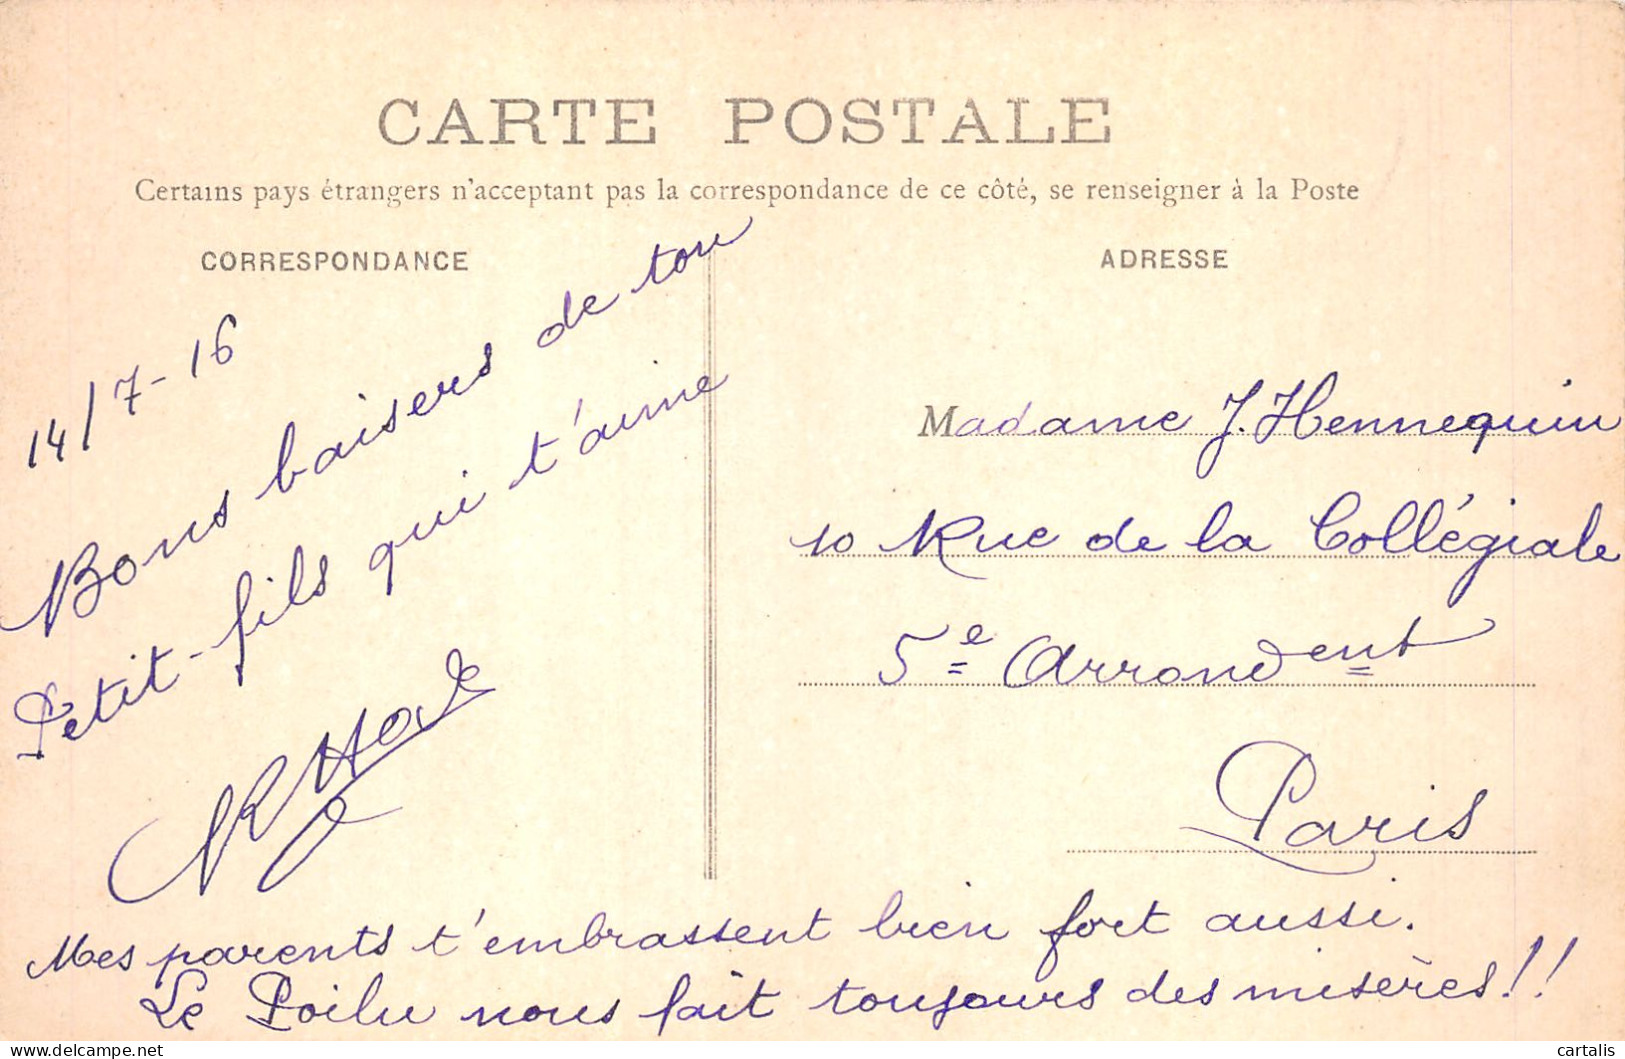 CARTE POSTALE
Certains pays étrangers n'acceptant pas la correspondance de ce côté, se renseigner à la Poste
CORRESPONDANCE
14/7-16
Bons baisers de ton
Petit-fils qui t'aime
Mes parents t'embrassent bien fort aussi.
Le Poilu nous fait toujours des misères!!
ADRESSE
Madame J. Hennequin
10 Rue de la Collégiale
5e Arrondent
Paris
delcampe.net
cartalis